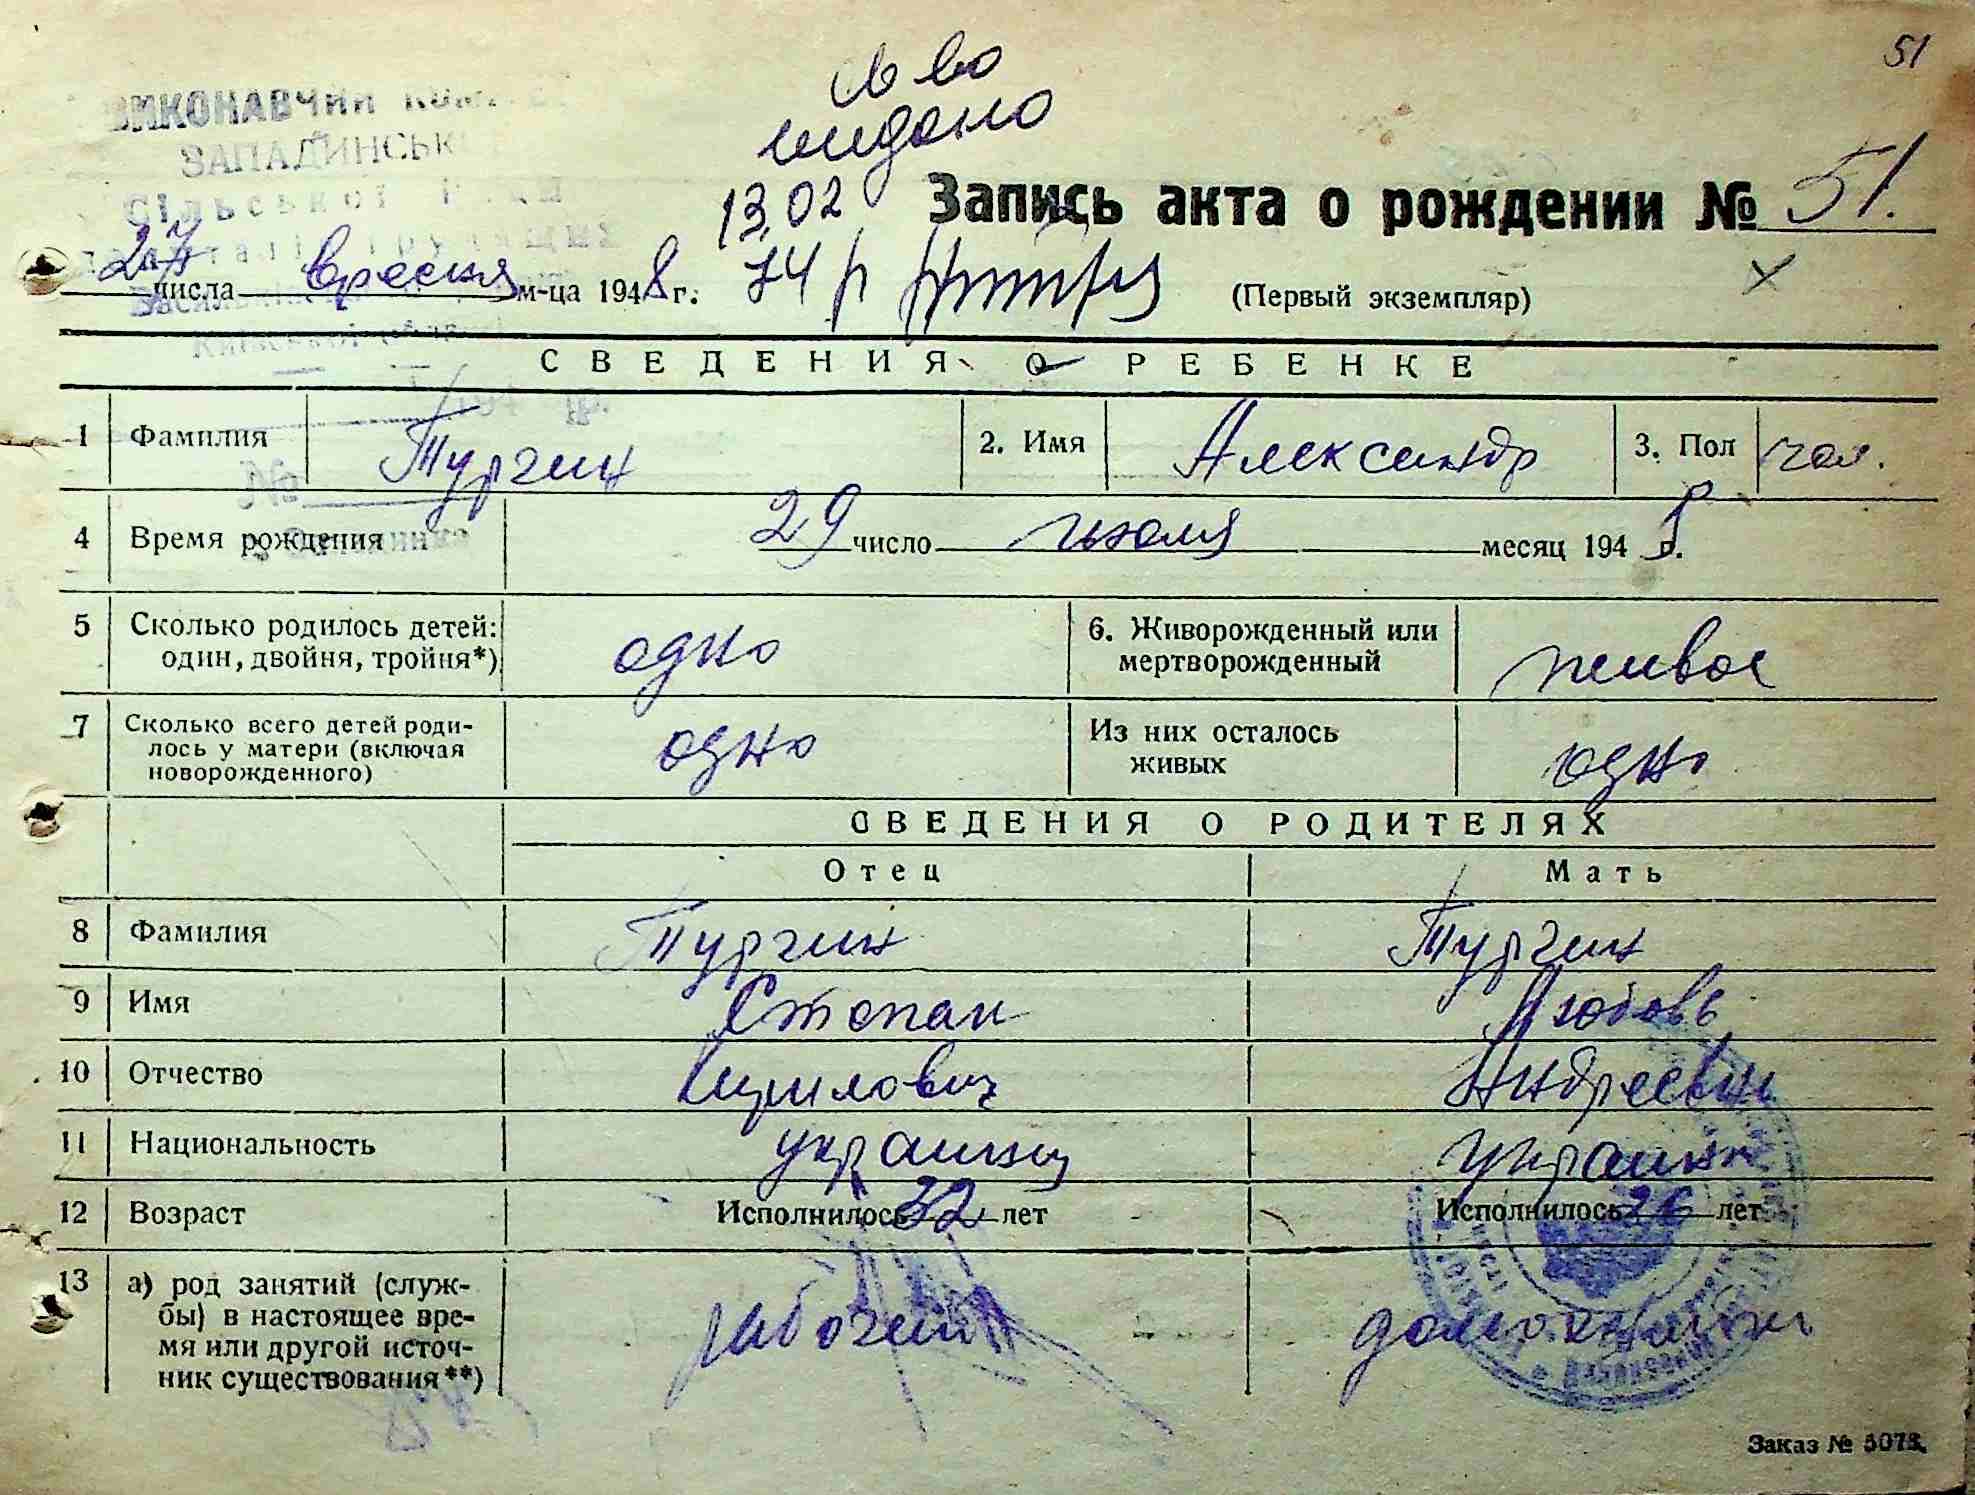 51
виконавчий
західинськ
Сільської Ради
св-во
видано
13.02
74 р
Запись акта о рождении № 51.
27 числа вресня м-ца 1948 г.
(Первый экземпляр)
СВЕДЕНИЯ О РЕБЕНКЕ
1 Фамилия Тургин 2. Имя Александр 3. Пол чол.
4 Время рождения 29 число июля месяц 1948 г.
5 Сколько родилось детей: один, двойня, тройня*) одно 6. Живорожденный или мертворожденный живое
7 Сколько всего детей родилось у матери (включая новорожденного) одно Из них осталось живых одно
СВЕДЕНИЯ О РОДИТЕЛЯХ
Отец Мать
8 Фамилия Тургин Тургин
9 Имя Степан Любовь
10 Отчество Кирилович Андреевн
11 Национальность украинец украинк
12 Возраст Исполнилось 32 лет Исполнилось 26 лет
13 а) род занятий (службы) в настоящее время или другой источник существования**) рабочий домохозяйка
Заказ № 5073.